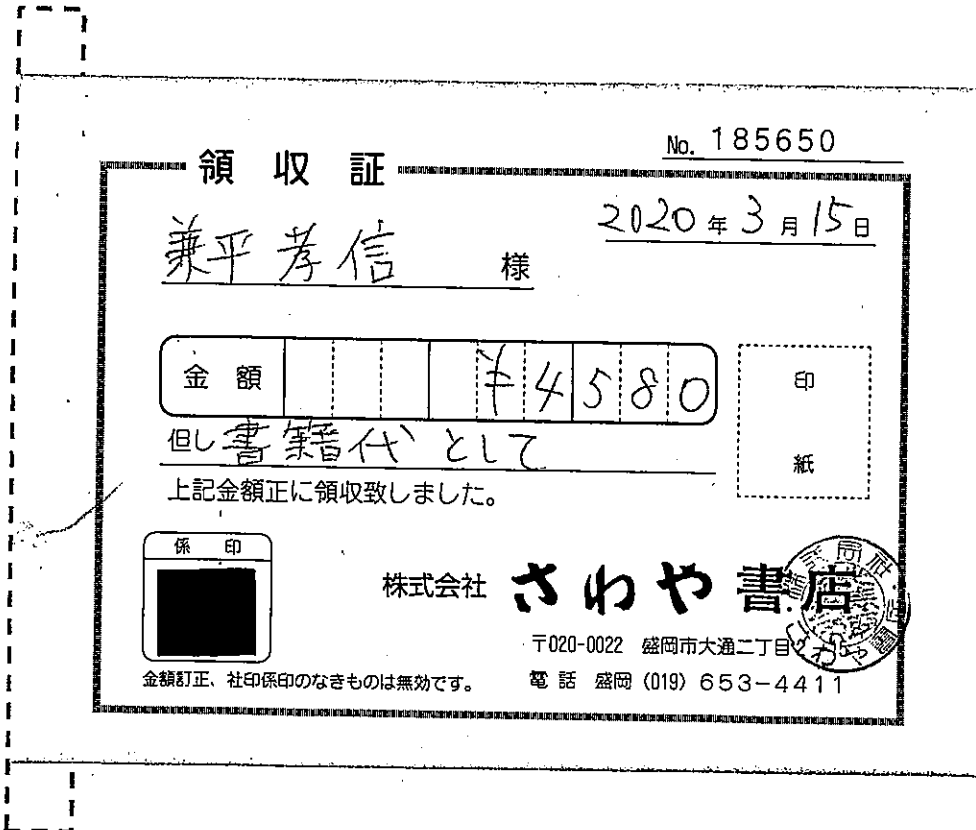 No. 185650
領収証
2020年3月15日
兼平孝信 様
金額 ¥4580
但し 書籍代として
印紙
上記金額正に領収致しました。
係印
株式会社 さわや書店
〒020-0022 盛岡市大通二丁目
電話 盛岡 (019) 653-4411
金額訂正、社印係印のなきものは無効です。